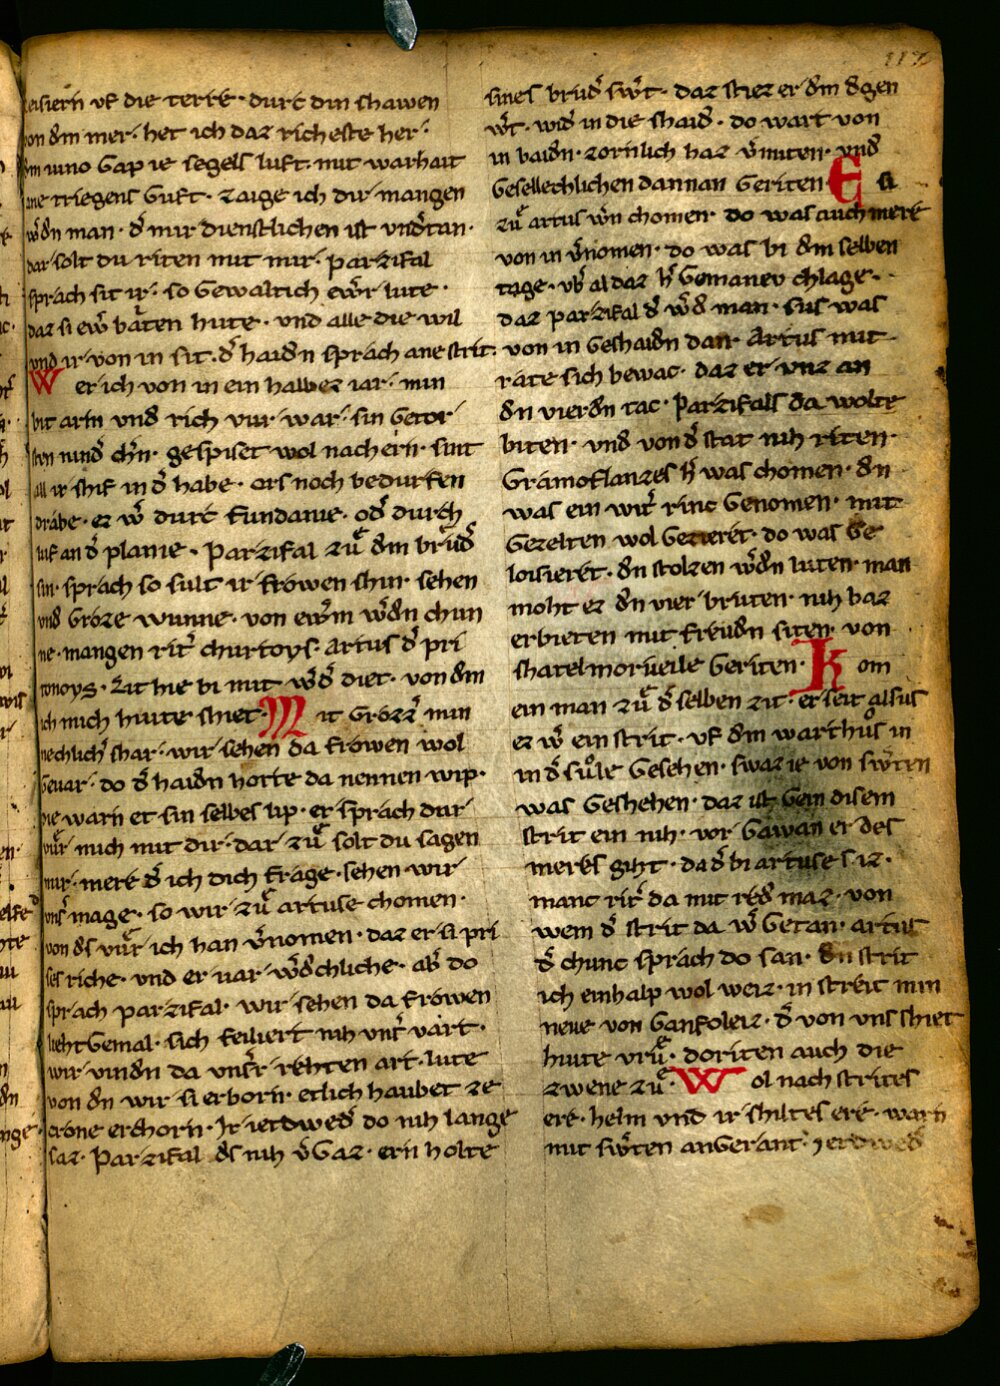 leisiern vf die terre · durc din shawen
von dem mer · het ich daz richeste her ·
dem iuno Gap ie segels luft · mit warhait
ane triegens Guft · zaige ich dir mangen
w̄dn man · d̄ mir dienstlichen ist vnd̄tan ·
dar solt du riten mit mir · parzifal
sprach sit ir · so Gewaltich ew̄r lute ·
daz si ew̄ baͤten hute · vnd alle die wil
vnd ir von in sit · d̄ haidn sprach ane strit ·
W er ich von in ein halbez iar · min
bit arm vnd rich vur war · sin Getor
sten nind̄ chn̄ · gespiset wol nach ern · sint
all ir shif in d̄ habe · ors noch bedurfen
drabe · ez w̄ durc fundanie · od̄ durch
luft an d̄ planie · Parzifal zuͤ dm brud̄
sin · sprach so sult ir frowen shin · sehen
vnd Groze wunne · von ew̄m w̄dn chun
ne · mangen rit̄ churtoys · Artus d̄ pri
tonoys · Lit hie bi mit w̄d̄ diet · von dm
ich mich hiute shiet · M it Grozz̄ min
nechlich̄ shar · wir sehen da frowen wol
Gevar · do d̄ haidn horte da nennen wip ·
die warn et sin selbes lip · er sprach dar
vuͤr mich mit dir · dar zuͤ solt du sagen
mir · mere d̄ ich dich frage · sehen wir
vns̄ mage · so wir zuͤ artuse chomen ·
von ds vuͤr ich han v̄nomen · daz er si pri
ses riche · vnd er var w̄dchliche · ab̄ do
sprach parzifal · wir sehen da frowen
lieht Gemal · sich feiliert nih vns̄ vart ·
wir vindn da vns̄r rehten art · lute
von dn wir si erborn · etlich haubet ze
crone erchorn · Ir ietdwed̄ do nih lange
saz · Parzifal ds nih v̄Gaz · ern holte
sines brud̄ sw̄t · daz stiez er dm dgen
w̄t · wid̄ in die shaid · do wart von
in baidn · zornlich haz v̄miten · vnd
Gesellechlichen dannan Geriten E si
zuͤ artus w̄n chomen · do was auch mere
von in v̄nomen · do was bi dm selben
tage · vb̄ al daz h̄ Gemanev chlage ·
daz parzifal d̄ w̄d man · sus was
von in Geshaidn dan · Artus mit
rate sich bewac · daz er vnz an
dn vierdn tac · Parzifals da wolte
biten · vnd von d̄ stat nih riten ·
Gramoflanzes h̄ was chomen · dn
was ein wit̄ rinc Genomen · mit
Gezelten wol Gezieret · do was Ge
loisieret · dn stolzen w̄dn luten man
moht ez dn vier bruten · nih baz
erbieten mit freudn siten · von
shatelmorueile Geriten · K om
ein man zuͤ d̄ selben zit · er seit alsus
ez w̄ ein strit · vf dm warthuͦs in
in d̄ suͦle Gesehen · swaz ie von sw̄ten
was Geshehen · daz ist Gein disem
strit ein nih · vor Gawan er des
meres giht · da d̄ bi artuse siz ·
manc rit̄ da mit red̄ maz · von
wem d̄ strit da w̄ Getan · artus
d̄ chunc sprach do san · dn strit
ich einhalp wol weiz · in streit min
neue von Ganfoleiz · d̄ von vns shiet
hiute vruͤ · do riten auch die
zwene zuͤ · W ol nach strites
ere · helm und ir shiltes ere · warn
mit sw̄ten anGerant · ietdwed̄